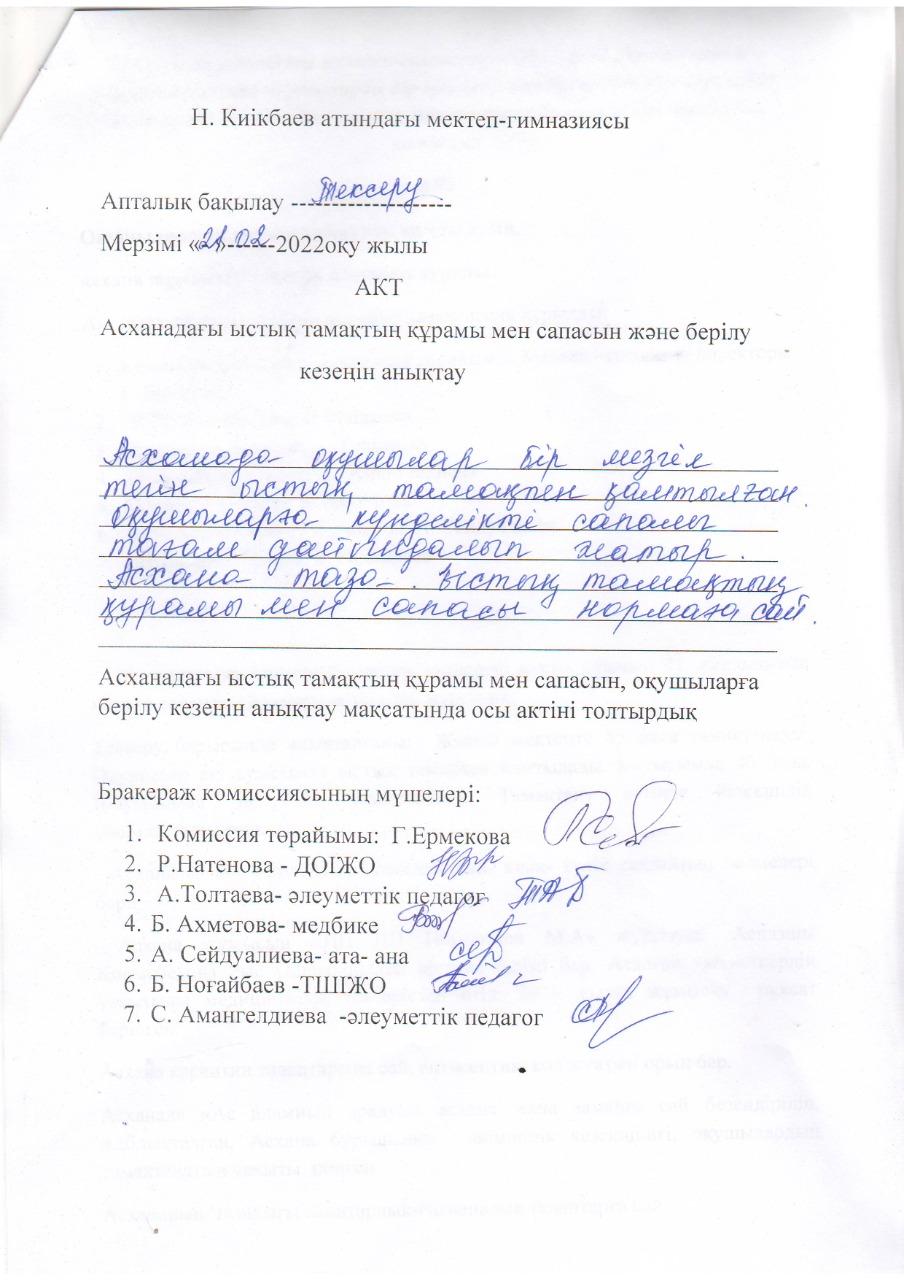 Н. Киікбаев атындағы мектеп-гимназиясы
Апталық бақылау -------------------- Тексеру
Мерзімі «21» 02 ------2022оқу жылы
АКТ
Асханадағы ыстық тамақтың құрамы мен сапасын және берілу
кезеңін анықтау
Асханада оқушылар бір мезгіл
тегін ыстық тамақпен қамтылған.
Оқушыларға күнделікті сапалы
тағам дайындалып жатыр.
Асхана таза. Ыстық тамақтың
құрамы мен сапасы нормаға сай.
Асханадағы ыстық тамақтың құрамы мен сапасын, оқушыларға
берілу кезеңін анықтау мақсатында осы актіні толтырдық
Бракераж комиссиясының мүшелері:
1. Комиссия төрайымы: Г.Ермекова
2. Р.Натенова - ДОІЖО
3. А.Толтаева- әлеуметтік педагог
4. Б. Ахметова- медбике
5. А. Сейдуалиева- ата- ана
6. Б. Ноғайбаев -ТІШІЖО
7. С. Амангелдиева -әлеуметтік педагог